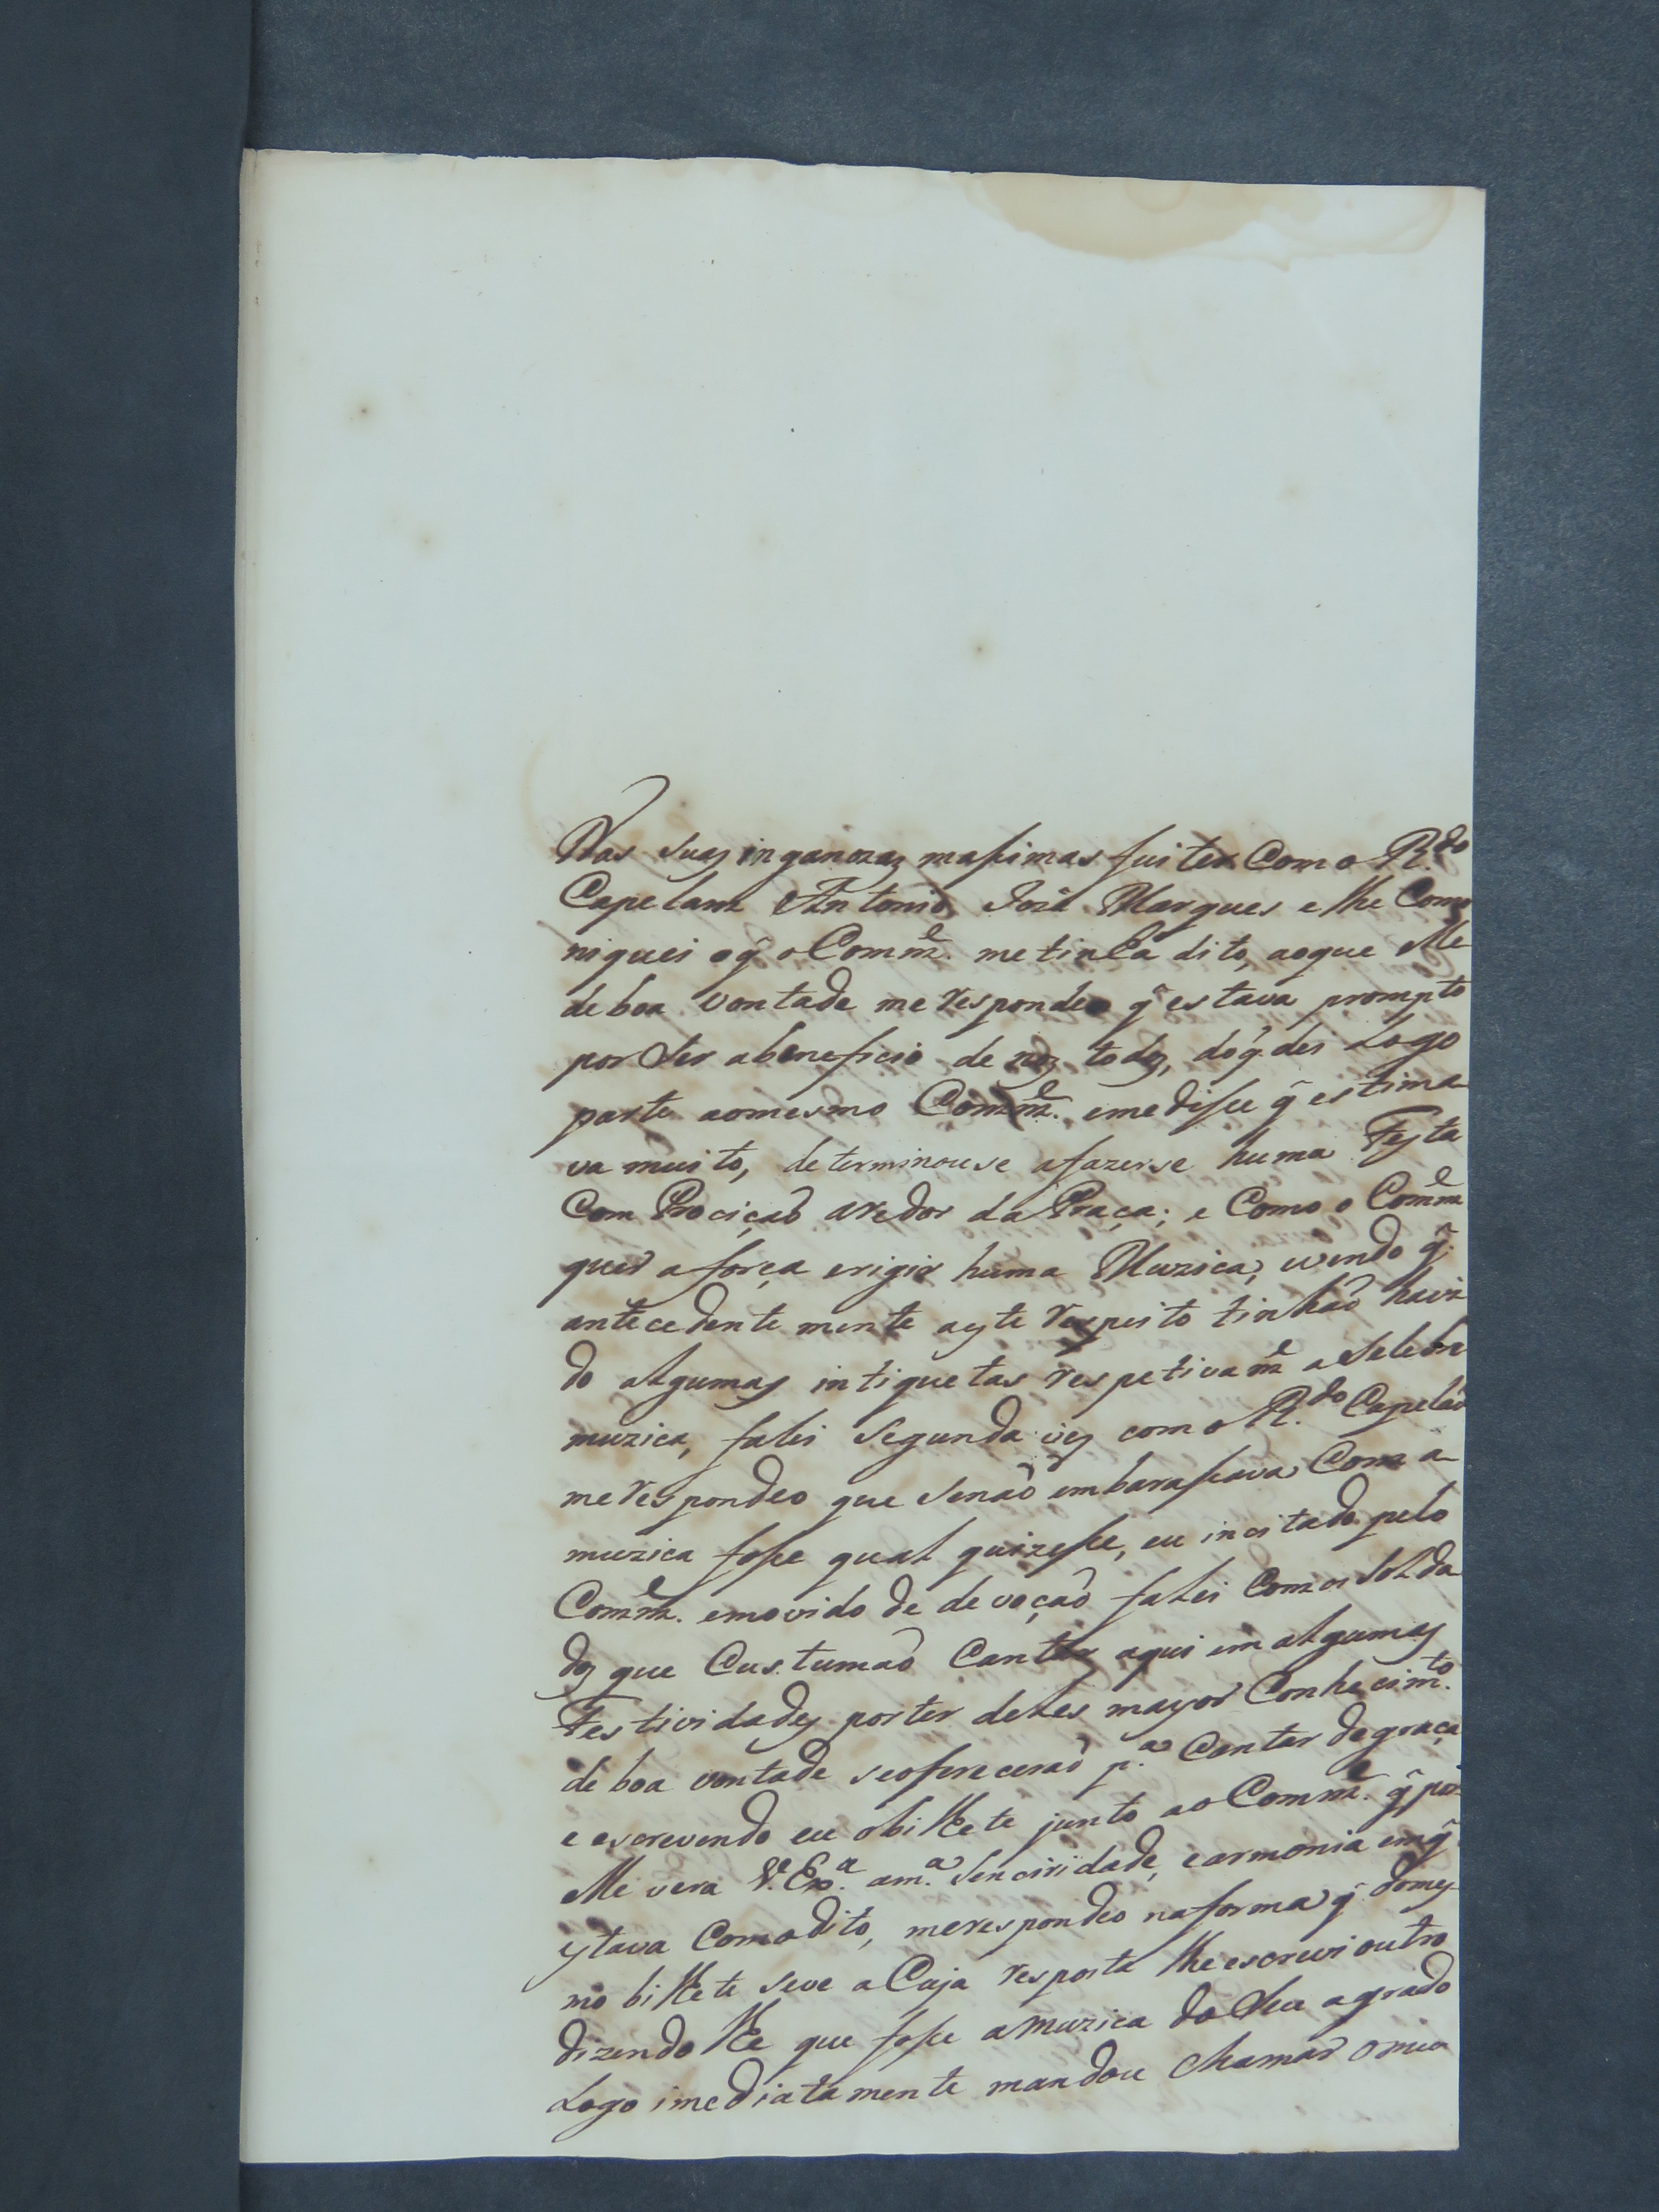 Nas suas inganozas maximas fui ter Com o R.do
Capelam Antonio Jozé Marques e lhe Como
niquei oq̃ o Comm.e me tinha dito, aoque elle
de boa vontade me respondeo q̃ estava prompto
por ser abeneficio de nos todos, doq̃ dei Logo
parte aomesmo Comm.e emedisse q̃ estima
va muito, determinouse afazerse huma Festa
Com Prociçaõ aredor da Praça; e Como o Comm.e
quer aforça erigir huma Muzica, vendo q̃
antecedentemente aeste respeito tinhaõ havi
do algumas intiquetas respetivam.e aSelebre
muzica, falei Segunda ves com o R.do Capelaõ
merespondeo que Senaõ embarassava Com a
muzica fosse qual quizesse, eu incitado pelo
Comm.e emovido de devoçaõ falei Com os Solda
dos que Custumaõ Cantar aqui em algumas
Festividades por ter deles mayor Conhecim.to
de boa vontade seofereceraõ p.a Cantar degraça
e escrevendo eu obilhete junto ao Comm.e q̃ por
elle vera V. Ex.a am.a Senciridade, earmonia emq̃
estava Comodito, merespondeo naforma q̃ domes
mo bilhete seve aCuja resposta lheescrevi outro
dizendolhe que fosse aMuzica do Seu agrado
Logo imediatamente mandou chamar omeo